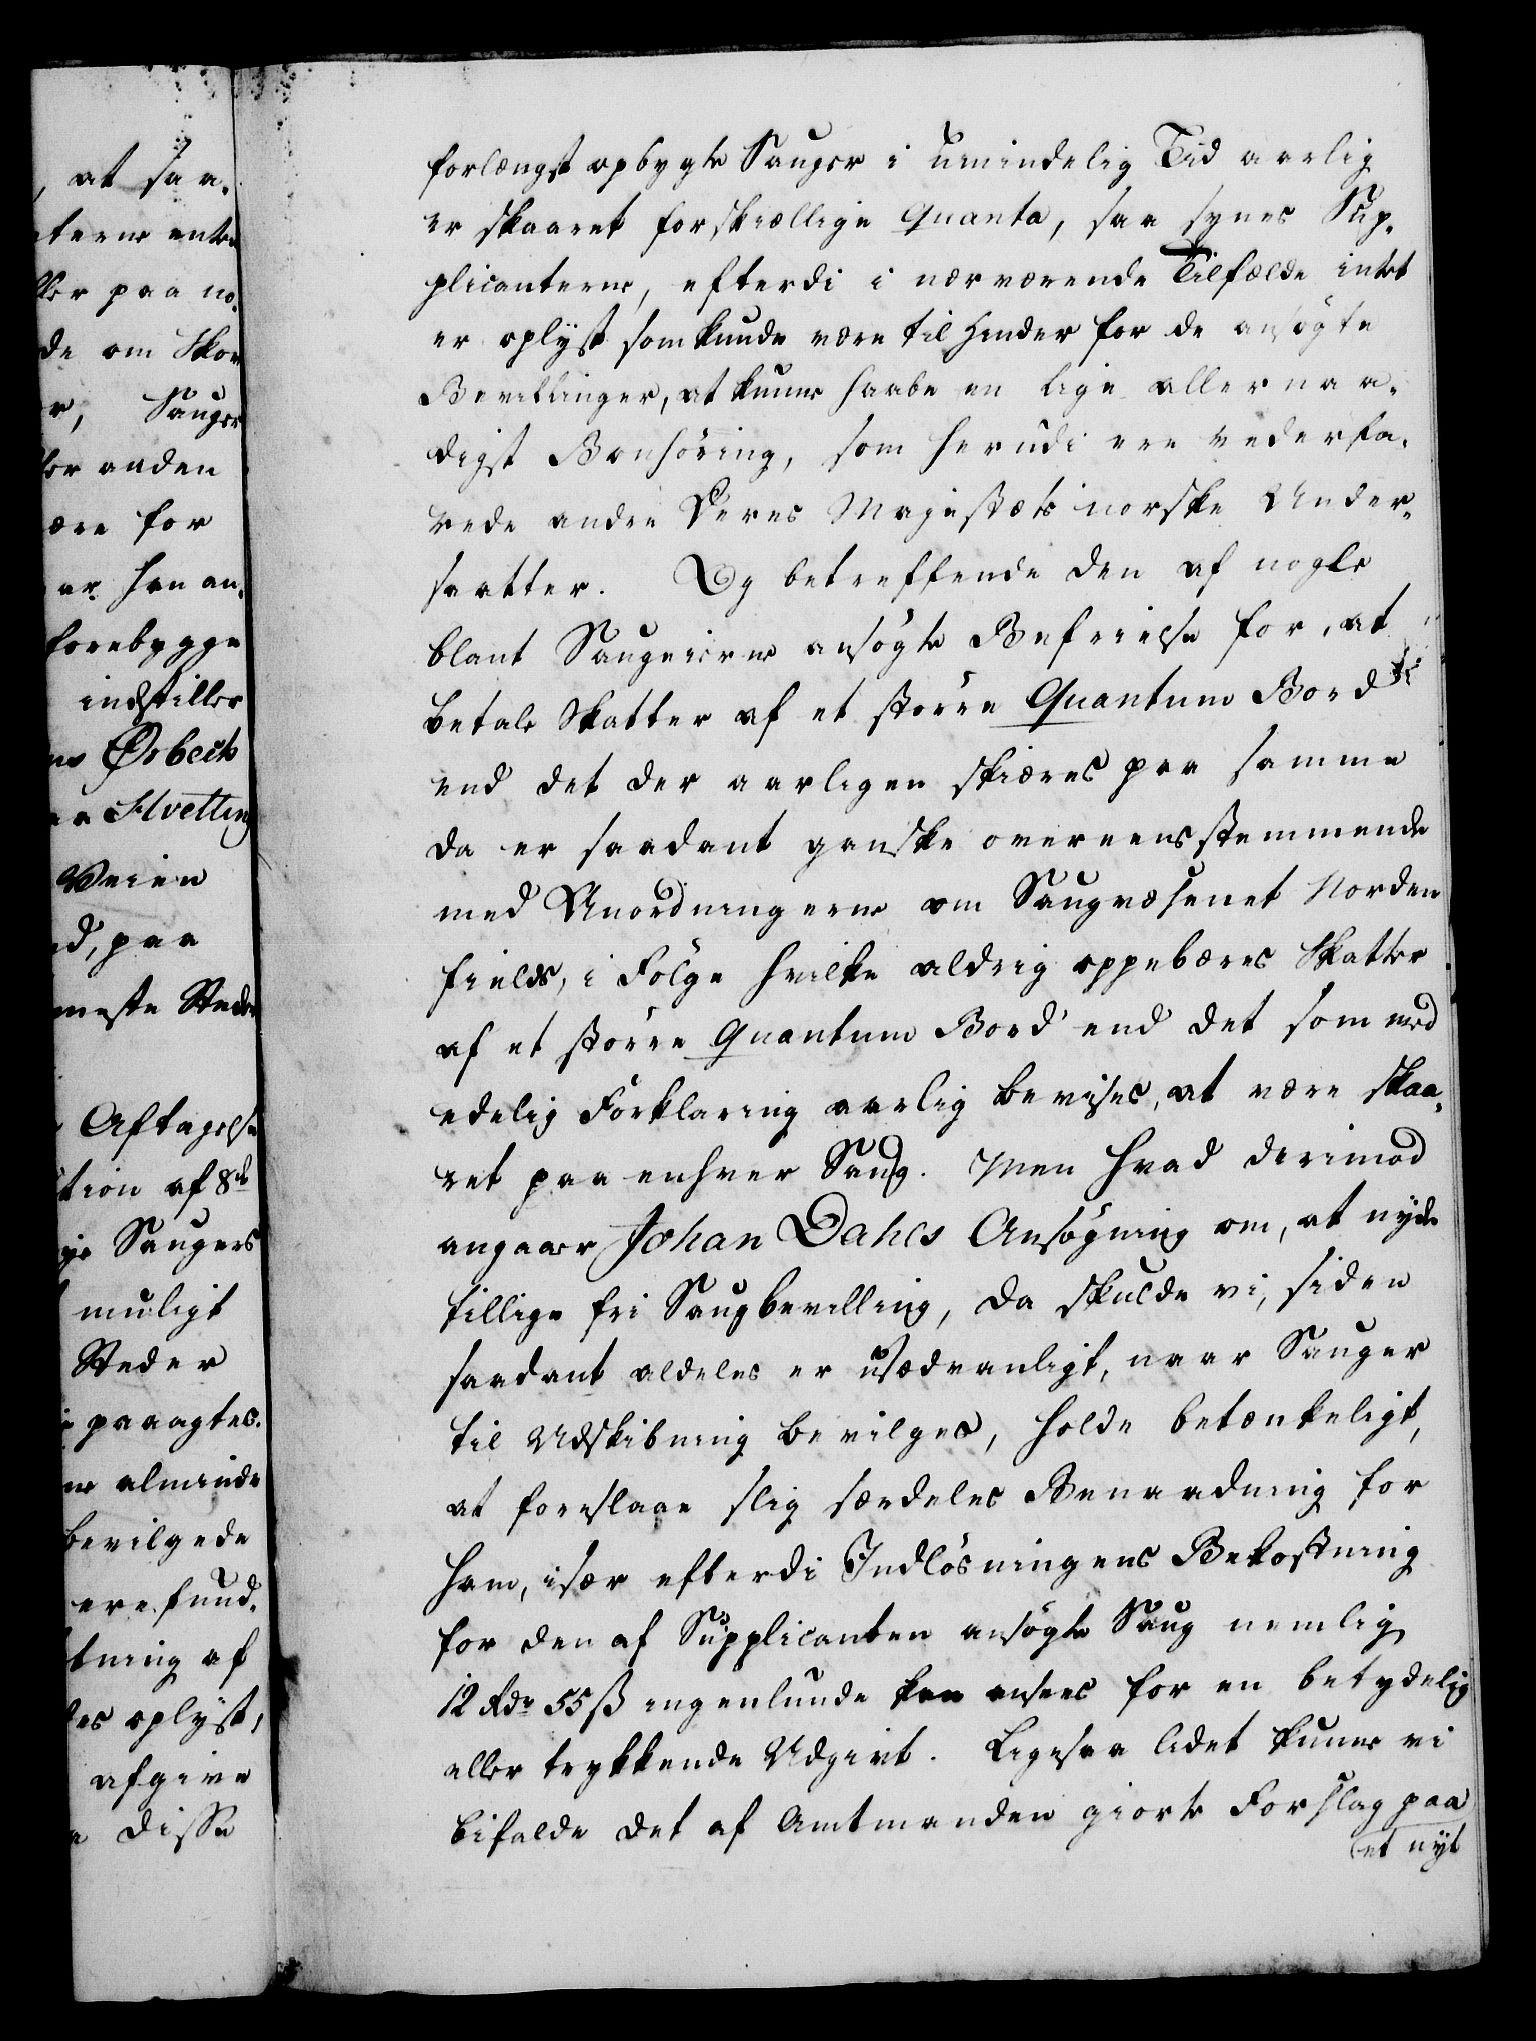 , at saa-
terne enten
ller paa no-
de om Skov
r, Sauger
ler anden
ære for
ar han an-
forebygge
indstilles
Orbech
Hvetting
Veien
d, paa
meste Steder
Aftagelse
tion af 8de
ge Saugers
muligt
Steder
paaagtes.
alminde
bevilgede
ere fund-
tning af
les oplyst,
afgive
disse
forlængst opbygte Sauger i umindelig Tid aarlig
er skaaret forskiællige Quanta, saa synes Sup-
plicanterne, efterdi i nærværende Tilfælde intet
er oplyst som kunde være til Hinder for de ansøgte
Bevillinger, at kunne haabe en lige allernaa-
digst Bønhøring, som herudi ere vederfa-
rede andre Deres Majestæts norske Under-
saatter. Og betreffende den af nogle
blant Saugeierne ansøgte Befrielse for, at
betale Skatter af et større Quantum Bord
end det der aarligen skiæres paa samme
da er saadant ganske overeensstemmende
med Anordningerne om Saugvæsenet Norden
fields, i Følge hvilke aldrig oppebæres Skatter
af et større Quantum Bord end det som med
edelig Forklaring aarlig bevises, at være skaa-
ret paa enhver Saug. Men hvad derimod
angaaer Johan Dahls Ansøgning om, at nyde
tillige fri Saugbevilling, da skulde vi, siden
saadant aldeles er usædvanligt, naar Sauger
til Udskibning bevilges, holde betænkeligt,
at foreslaae slig særdeles Benaadning for
ham, især efterdi Indløsningens Bekostning
for den af Supplicanten ansøgte Saug nemlig
12 Rdr 55 ß ingenlunde kan ansees for en betydelig
eller trykkende Udgivt. Ligesaa lidet kunne vi
bifalde det af Amtmanden giorte Forslag paa
et nyt